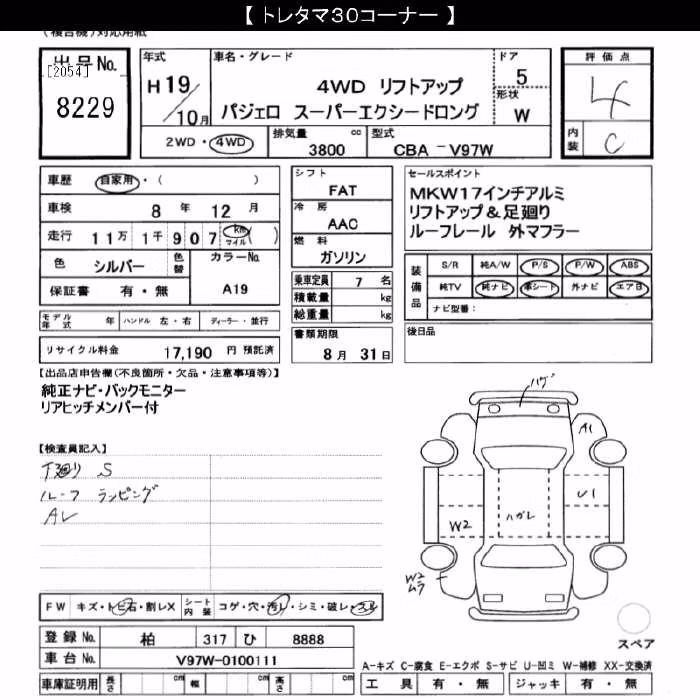 【 トレタマ30コーナー 】
(複合機)対応用紙
出品No.
[2054]
8229
年式
H19/10月
車名・グレード
4WD リフトアップ
パジェロ スーパーエクシードロング
ドア
5
形状
W
評価点
4
内装
C
2WD・4WD
排気量
3800 cc
型式
CBA -V97W
車歴
自家用・( )
車検
8 年 12 月
走行
11万 1千907 km マイル ( )
色
シルバー
色替
カラーNo.
A19
保証書
有・無
シフト
FAT
冷房
AAC
燃料
ガソリン
乗車定員 7 名
積載量 kg
総重量 kg
書類期限
8月 31日
セールスポイント
MKW17インチアルミ
リフトアップ&足廻り
ルーフレール 外マフラー
装備品
S/R 純A/W P/S P/W ABS
純TV 純ナビ 革シート 外ナビ エア日
ナビ型番:
後日品
モデル年式 年 ハンドル 左・右 ディーラー・並行
リサイクル料金 17,190 円 預託済
【出品店申告欄(不良箇所・欠品・注意事項等)】
純正ナビ・バックモニター
リアヒッチメンバー付
【検査員記入】
下廻り S
ルーフ ラッピング
AL
ハゲ
A1
U1
W2
ハガレ
W2
ムラ
FW キズ・トビ石・割レX
シート内装 コゲ・穴・汚レ・シミ・破レ・スレ
登録No. 柏 317 ひ 8888
車台No. V97W-0100111
車庫証明用 長さ cm 幅 cm 高さ cm
スペア
A-キズ C-腐食 E-エクボ S-サビ U-凹ミ W-補修 XX-交換済
工具 有・無 ジャッキ 有・無